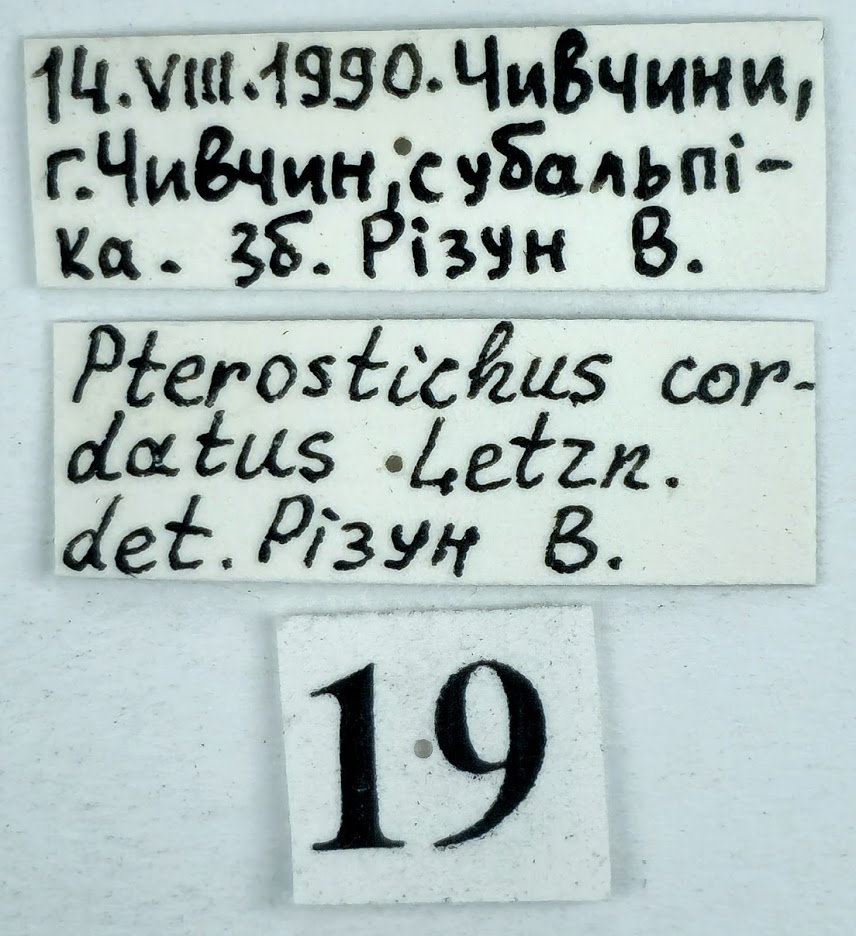 14.VIII.1990. Чивчини,
г. Чивчин, субальпі-
ка. зб. Різун В.
Pterostichus cor-
datus Letzn.
det. Різун В.
19